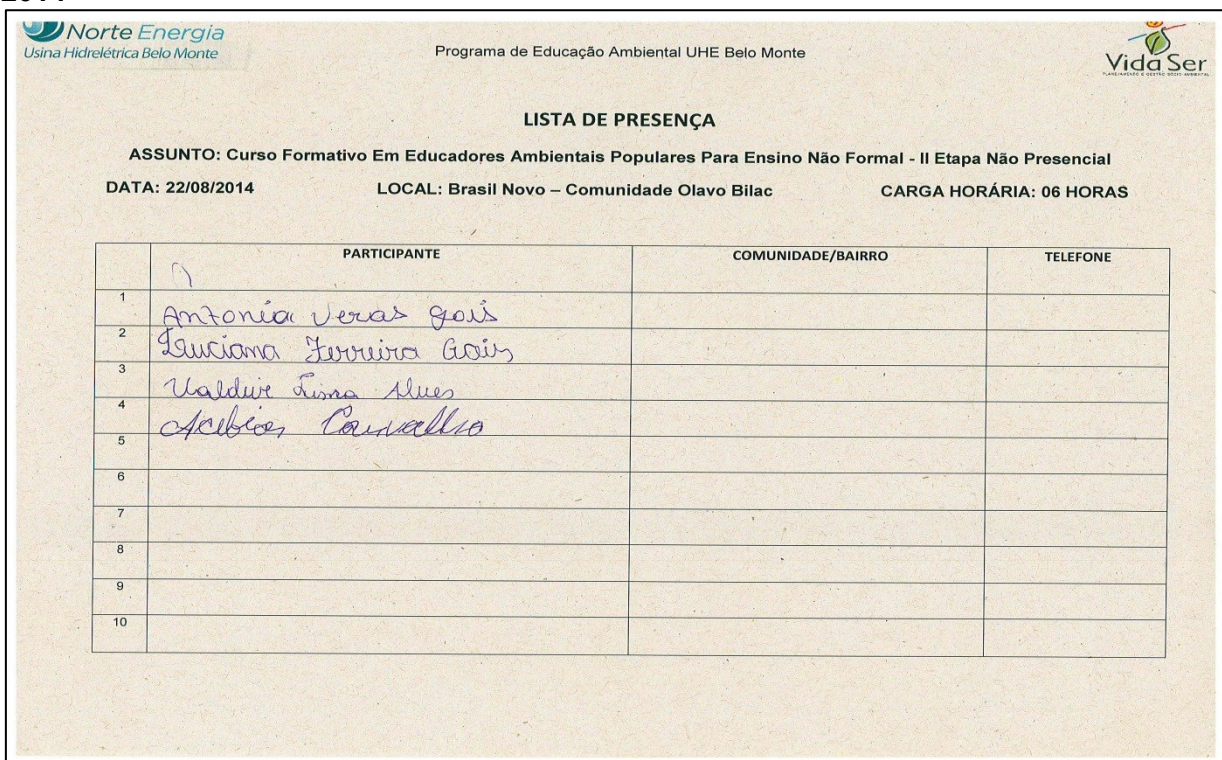 Norte Energia
Usina Hidrelétrica Belo Monte
Programa de Educação Ambiental UHE Belo Monte
Vida Ser
LISTA DE PRESENÇA
ASSUNTO: Curso Formativo Em Educadores Ambientais Populares Para Ensino Não Formal - II Etapa Não Presencial
DATA: 22/08/2014 LOCAL: Brasil Novo – Comunidade Olavo Bilac CARGA HORÁRIA: 06 HORAS
PARTICIPANTE COMUNIDADE/BAIRRO TELEFONE
1 Antonia Veras gois
2 Luciana Ferreira Gois
3 Lima Alves
4 Carvalho
5
6
7
8
9
10